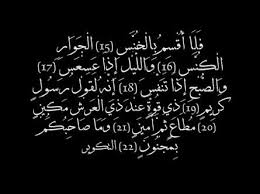 فَلَا أُقْسِمُ بِالْخُنَّسِ (15) الْجَوَارِ
الْكُنَّسِ (16) وَاللَّيْلِ إِذَا عَسْعَسَ (17)
وَالصُّبْحِ إِذَا تَنَفَّسَ (18) إِنَّهُ لَقَوْلُ رَسُولٍ
كَرِيمٍ (19) ذِي قُوَّةٍ عِندَ ذِي الْعَرْشِ مَكِينٍ
(20) مُطَاعٍ ثَمَّ أَمِينٍ (21) وَمَا صَاحِبُكُم
بِمَجْنُونٍ (22) التكوير